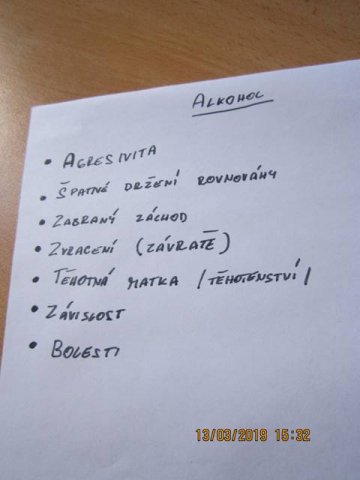 ALKOHOL
• AGRESIVITA
• ŠPATNÉ DRŽENÍ ROVNOVÁHY
• ZABRANÝ ZÁCHOD
• ZVRACENÍ (ZÁVRATĚ)
• TĚHOTNÁ MATKA /TĚHOTENSTVÍ/
• ZÁVISLOST
• BOLESTI
13/03/2019 15:32